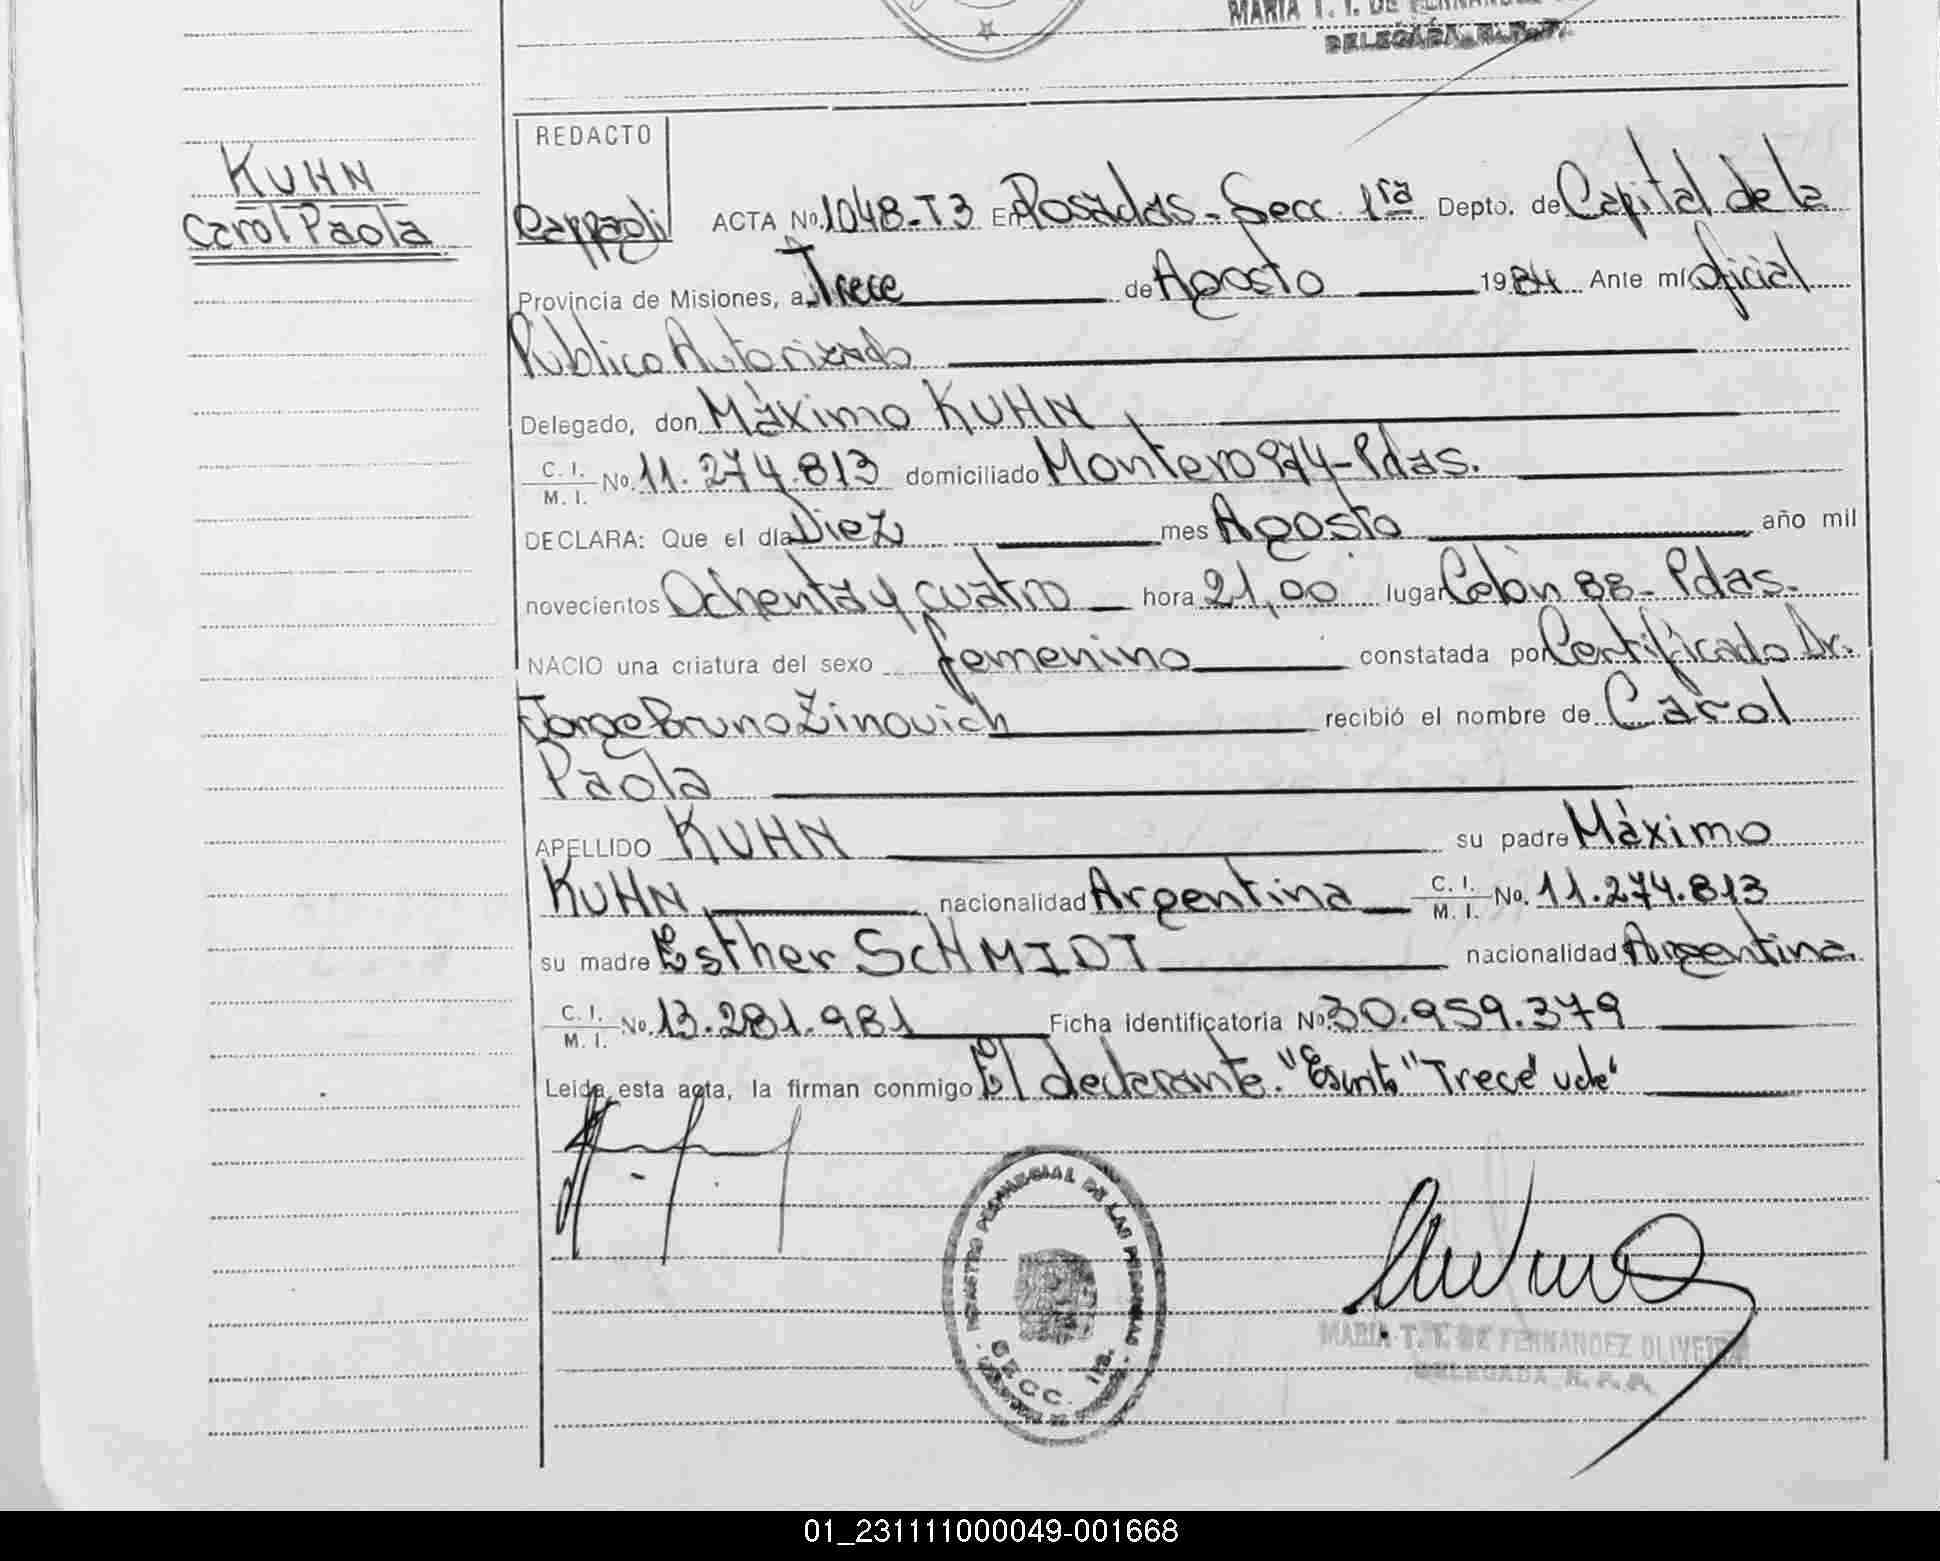 MARIA T. T. DE FERNANDEZ
DELEGADA R. P. P.
KUHN
Carol Paola
REDACTO
ACTA No. 1048-T3 En Posadas - Secc. 1ra Depto. de Capital de la
Provincia de Misiones, a Trece de Agosto 1984 Ante mí Oficial
Público Autorizado
Delegado, don Máximo KUHN
C. I.
M. I. No. 11.274.813 domiciliado Montero 974 - Pdas.
DECLARA: Que el día Diez mes Agosto año mil
novecientos Ochenta y cuatro hora 21,00 lugar Colón 88 - Pdas.
NACIO una criatura del sexo femenino constatada por Certificado Dr.
Jorge Bruno Zinovich recibió el nombre de Carol
Paola
APELLIDO KUHN su padre Máximo
KUHN nacionalidad Argentina C. I.
M. I. No. 11.274.813
su madre Esther SCHMIDT nacionalidad Argentina.
C. I.
M. I. No. 13.281.981 Ficha identificatoria No 30.959.379
Leida esta acta, la firman conmigo El declarante. "Escrito" "Trece" vale"
REGISTRO PROVINCIAL DE LAS PERSONAS
SECC. 1ra.
MARIA T. T. DE FERNANDEZ OLIVEIRA
DELEGADA R. P. P.
01_231111000049-001668